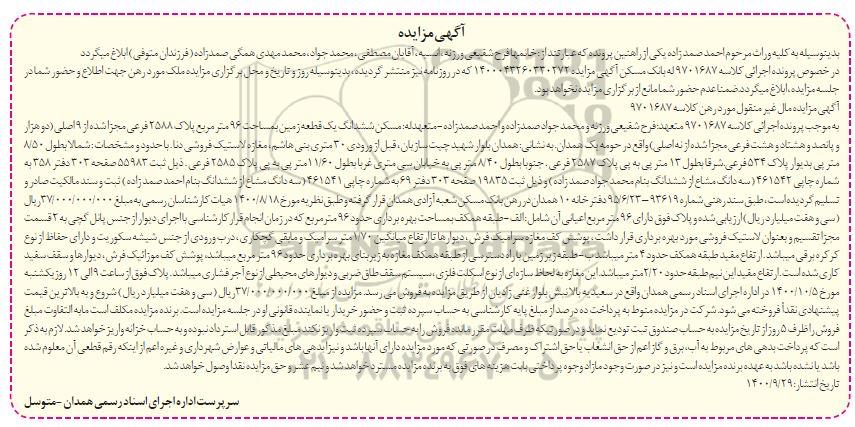 آگهی مزایده
بدینوسیله به کلیه وراث مرحوم احمد صمدزاده یکی از راهنین پرونده که عبارتند از: خانمها فرح شفیعی ورزنه، انسیه، آقایان مصطفی، محمد جواد، محمد مهدی همگی صمدزاده (فرزندان متوفی) ابلاغ میگردد
در خصوص پرونده اجرائی کلاسه ۹۷۰۱۶۸۷ له بانک مسکن آگهی مزایده ۱۴۰۰۰۴۳۲۶۰۳۳۰۲۷۲ که در روزنامه نیز منتشر گردیده، بدینوسیله روز و تاریخ و محل برگزاری مزایده ملک مورد رهن جهت اطلاع و حضور شما در
جلسه مزایده، ابلاغ میگردد ضمنا عدم حضور شما مانع از برگزاری مزایده نخواهد بود.
آگهی مزایده مال غیر منقول مورد رهن کلاسه ۹۷۰۱۶۸۷
به موجب پرونده اجرائی کلاسه ۹۷۰۱۶۸۷ متعهد: فرح شفیعی ورزنه و محمد جواد صمدزاده و احمد صمدزاده -متعهدله: مسکن ششدانگ یک قطعه زمین بمساحت ۹۶ متر مربع پلاک ۲۵۸۸ فرعی مجزا شده از ۹ اصلی (دو هزار
و پانصد و هشتاد و هشت فرعی مجزا شده از نه اصلی) واقع در حومه یک همدان، به نشانی: همدان بلوار شهید چیت سازیان، قبل از ورودی ۳۰ متری بنی هاشم، مغازه لاستیک فروشی دنا. با حدود و مشخصات: شمالا بطول ۸/۵۰
متر پی بدیوار پلاک ۵۳۴ فرعی. شرقا بطول ۱۳ متر پی به پی پلاک ۲۵۸۷ فرعی. جنوبا بطول ۸/۴۰ متر پی به خیابان سی متری غربا بطول ۱۱/۶۰ متر پی به پی پلاک ۲۵۸۵ فرعی. ذیل ثبت ۵۵۹۸۳ صفحه ۳۰۳ دفتر ۳۵۸ به
شماره چاپی ۴۶۱۵۴۲ (سه دانگ مشاع از ششدانگ بنام محمد جواد صمدزاده) و ذیل ثبت ۱۹۸۳۵ صفحه ۳۰۳ دفتر ۶۹ به شماره چاپی ۴۶۱۵۴۱ (سه دانگ مشاع از ششدانگ بنام احمد صمدزاده) ثبت و سند مالکیت صادر و
تسلیم گردیده است، طبق سند رهنی شماره ۹۳۶۱۹-۹۵/۶/۲۳ دفترخانه ۱۰ همدان در رهن بانک مسکن شعبه آزادی همدان قرار گرفته و طبق نظریه مورخ ۱۴۰۰/۸/۱۸ هیات کارشناسان رسمی به مبلغ ۳۷/۰۰۰/۰۰۰/۰۰۰ ریال
(سی و هفت میلیارد ریال) ارزیابی شده و پلاک فوق دارای ۹۶ متر مربع اعیانی آن شامل: الف-طبقه همکف بمساحت بهره برداری حدود ۹۶ متر مربع که در زمان انجام قرار کارشناسی با اجرای دیوار از جنس پانل گچی به ۲ قسمت
مجزا تقسیم و بعنوان لاستیک فروشی مورد بهره برداری قرار داشت، پوشش کف مغازه سرامیک فرش، دیوارها تا ارتفاع میانگین ۱۷۰ متر سرامیک و مابقی گچکاری، درب ورودی از جنس شیشه سکوریت و دارای حفاظ از نوع
کرکره برقی میباشد. ارتفاع مفید طبقه همکف حدود ۴ متر میباشد ب-طبقه زیرزمین با راه دسترسی از طبقه همکف مغازه به زیربنای بهره برداری حدود ۹۶ متر مربع میباشد، پوشش کف موزائیک فرش، دیوارها و سقف سفید
کاری شده است، ارتفاع مفید این نیم طبقه حدود ۲/۲۰ متر میباشد این مغازه به لحاظ سازه ای از نوع اسکلت فلزی، سیستم سقف طاق ضربی و دیوارهای محیطی از نوع آجر فشاری میباشد. پلاک فوق از ساعت ۹ الی ۱۲ روز یکشنبه
مورخ ۱۴۰۰/۱۰/۵ در اداره اجرای اسناد رسمی همدان واقع در سعیدیه بالا نبش بلوار غنی زادیان از طریق مزایده به فروش می رسد. مزایده از مبلغ ۳۷/۰۰۰/۰۰۰/۰۰۰ ریال (سی و هفت میلیارد ریال) شروع و به بالاترین قیمت
پیشنهادی نقداً فروخته می شود. شرکت در مزایده منوط به پرداخت ده درصد از مبلغ پایه کارشناسی به حساب سپرده ثبت و حضور خریدار یا نماینده قانونی او در جلسه مزایده است. برنده مزایده مکلف است مابه التفاوت مبلغ
فروش را ظرف ۵ روز از تاریخ مزایده به حساب صندوق ثبت تودیع نماید و در صورتیکه ظرف مهلت مقرر مانده فروش را به حساب سپرده ثبت واریز نکند مبلغ مذکور قابل استرداد نبوده و به حساب خزانه واریز خواهد شد. لازم به ذکر
است که پرداخت بدهی های مربوط به آب، برق و گاز اعم از حق انشعاب یا حق اشتراک و مصرف در صورتی که مورد مزایده دارای آنها باشد و نیز بدهی های مالیاتی و عوارض شهرداری و غیره اعم از اینکه رقم قطعی آن معلوم شده
باشد یا نشده باشد به عهده برنده مزایده است و نیز در صورت وجود مازاد وجوه پرداختی بابت هزینه های فوق به برنده مزایده مسترد خواهد شد و نیم عشر و حق مزایده نقدا وصول خواهد شد.
تاریخ انتشار: ۱۴۰۰/۹/۲۹
سرپرست اداره اجرای اسناد رسمی همدان -متوسل